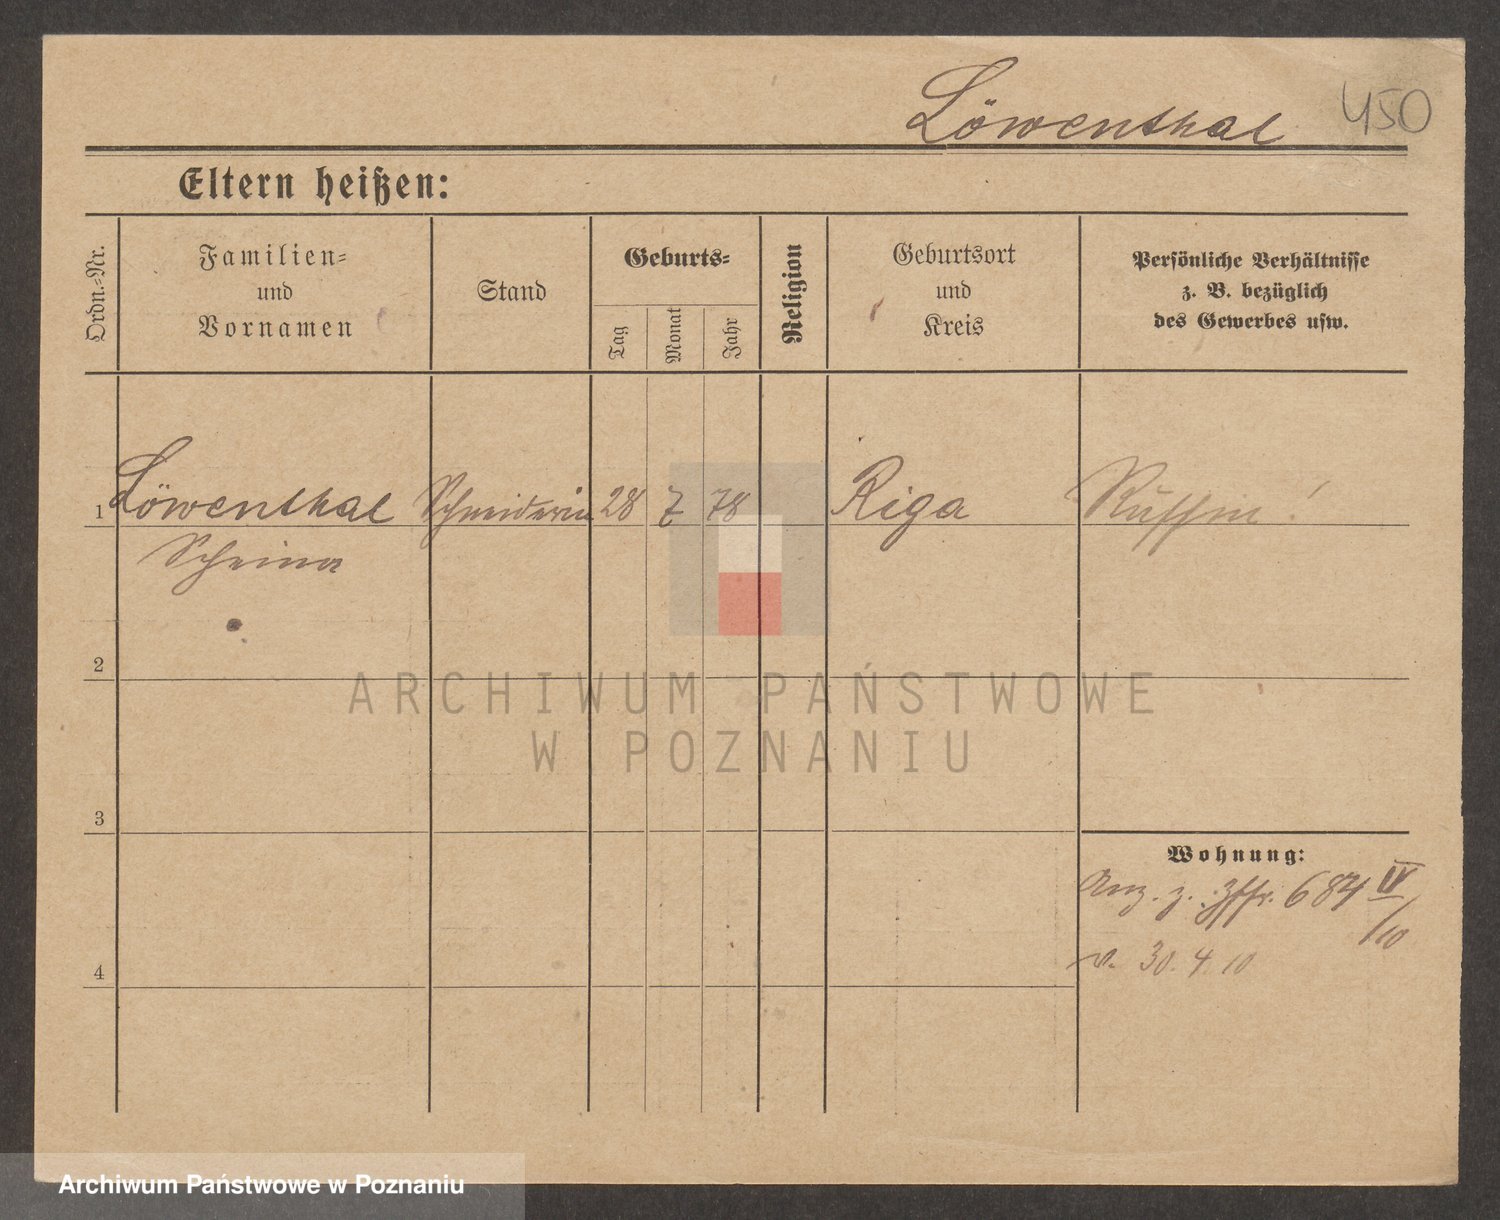 Löwenthal 450
Eltern heißen:
Ordn.-Nr.
Familien-
und
Vornamen
Stand
Geburts-
Tag
Monat
Jahr
Religion
Geburtsort
und
Kreis
Persönliche Verhältnisse
z. B. bezüglich
des Gewerbes usw.
1 Löwenthal Schneiderin 28 7 78 Riga Russin!
Scheina
2
3
4
Wohnung:
Anz. z. 684 IV/10
v. 30.4.10
ARCHIWUM PAŃSTWOWE
W POZNANIU
Archiwum Państwowe w Poznaniu